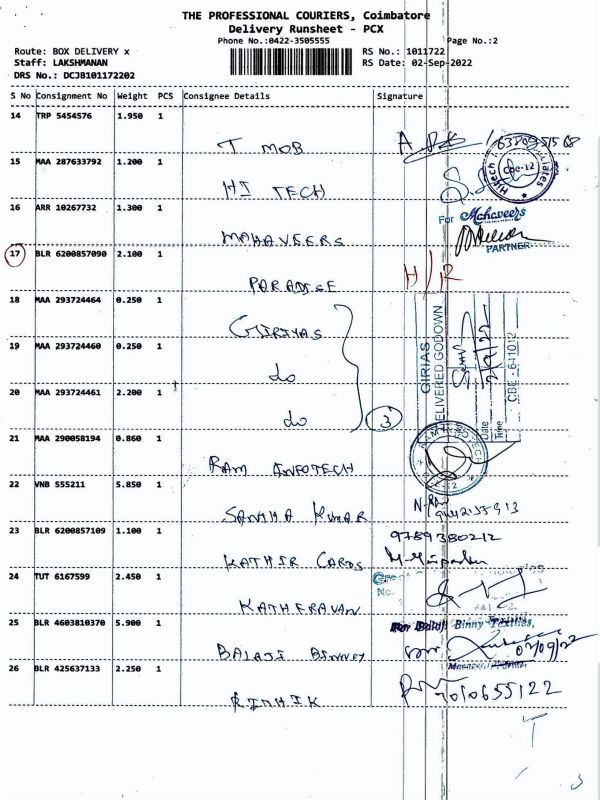 THE PROFESSIONAL COURIERS, Coimbatore
Delivery Runsheet - PCX
Phone No.:0422-3505555
Page No.:2
Route: BOX DELIVERY x
RS No.: 1011722
Staff: LAKSHMANAN
RS Date: 02-Sep-2022
DRS No.: DCJB101172202
S No Consignment No Weight PCS Consignee Details Signature
14 TRP 5454576 1.950 1
T MOB
15 MAA 287633792 1.200 1
HI TECH
Cbe-12
16 ARR 10267732 1.300 1
For Mahaveers
MAHAVEERS
PARTNER
17 BLR 6200857090 2.100 1
PARADISE H/R
18 MAA 293724464 0.250 1
GIRIYAS
19 MAA 293724460 0.250 1
do
20 MAA 293724461 2.200 1
do 3
GIRIAS
DELIVERED GODOWN
Date
Time
CBE - 641012
21 MAA 290058194 0.860 1
RAM INFOTECH
22 VNB 555211 5.850 1
SANTHA KUMAR
23 BLR 6200857109 1.100 1
9789380212
KATHIR CARDS
24 TUT 6167599 2.450 1
No.
KATHERAVAN
25 BLR 4603810370 5.900 1
For Balaji Binny Textiles,
BALAJI BINNEY
02/09/22
26 BLR 425637133 2.250 1
7010655122
RITHIK